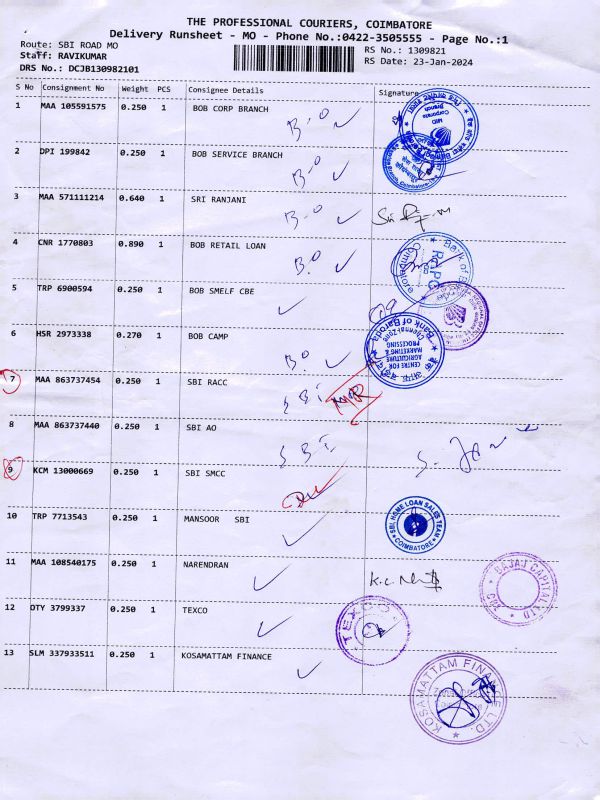 THE PROFESSIONAL COURIERS, COIMBATORE
Delivery Runsheet - MO - Phone No.:0422-3505555 - Page No.:1
Route: SBI ROAD MO
RS No.: 1309821
Staff: RAVIKUMAR
RS Date: 23-Jan-2024
DRS No.: DCJB130982101
S No Consignment No Weight PCS Consignee Details Signature
1 MAA 105591575 0.250 1 BOB CORP BRANCH B.O
2 DPI 199842 0.250 1 BOB SERVICE BRANCH B.O
3 MAA 571111214 0.640 1 SRI RANJANI B.O
4 CNR 1770803 0.890 1 BOB RETAIL LOAN B.O
5 TRP 6900594 0.250 1 BOB SMELF CBE
6 HSR 2973338 0.270 1 BOB CAMP B.O
Bank of Baroda
Chennai Zone
CENTRE FOR
AGRICULTURE
MARKETING &
PROCESSING
7 MAA 863737454 0.250 1 SBI RACC SBI
8 MAA 863737440 0.250 1 SBI AO SBI
9 KCM 13000669 0.250 1 SBI SMCC
10 TRP 7713543 0.250 1 MANSOOR SBI
SBI, HOME LOAN SALES TEAM
COIMBATORE
11 MAA 108540175 0.250 1 NARENDRAN
BAJAJ CAPITAL LTD
12 OTY 3799337 0.250 1 TEXCO
TEXCO
13 SLM 337933511 0.250 1 KOSAMATTAM FINANCE
KOSAMATTAM FINANCE LTD.